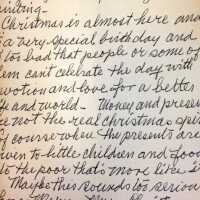 uniting-
Christmas is almost here and
s a very special birthday and
too bad that people or some of
em can't celebrate the day with
votion and love for a better
fe and world- Money and presen
re not the real christmas spir
of course when the presents are
ven to little children and food
to the poor that's more like i
Maybe this sounds too seriou